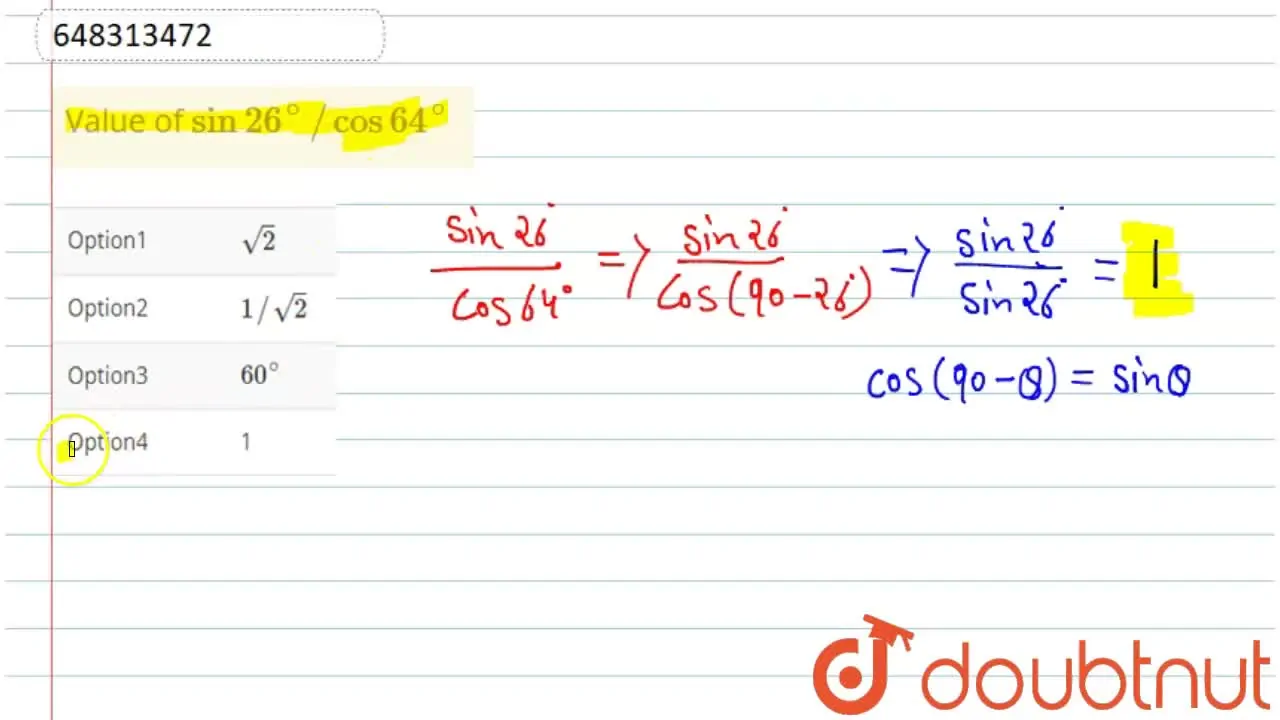 648313472
Value of sin 26° / cos 64°
Option1 √2
Option2 1/√2
Option3 60°
Option4 1
sin 26° / cos 64° => sin 26° / cos(90-26°) => sin 26° / sin 26° = 1
cos(90-θ) = sin θ
doubtnut